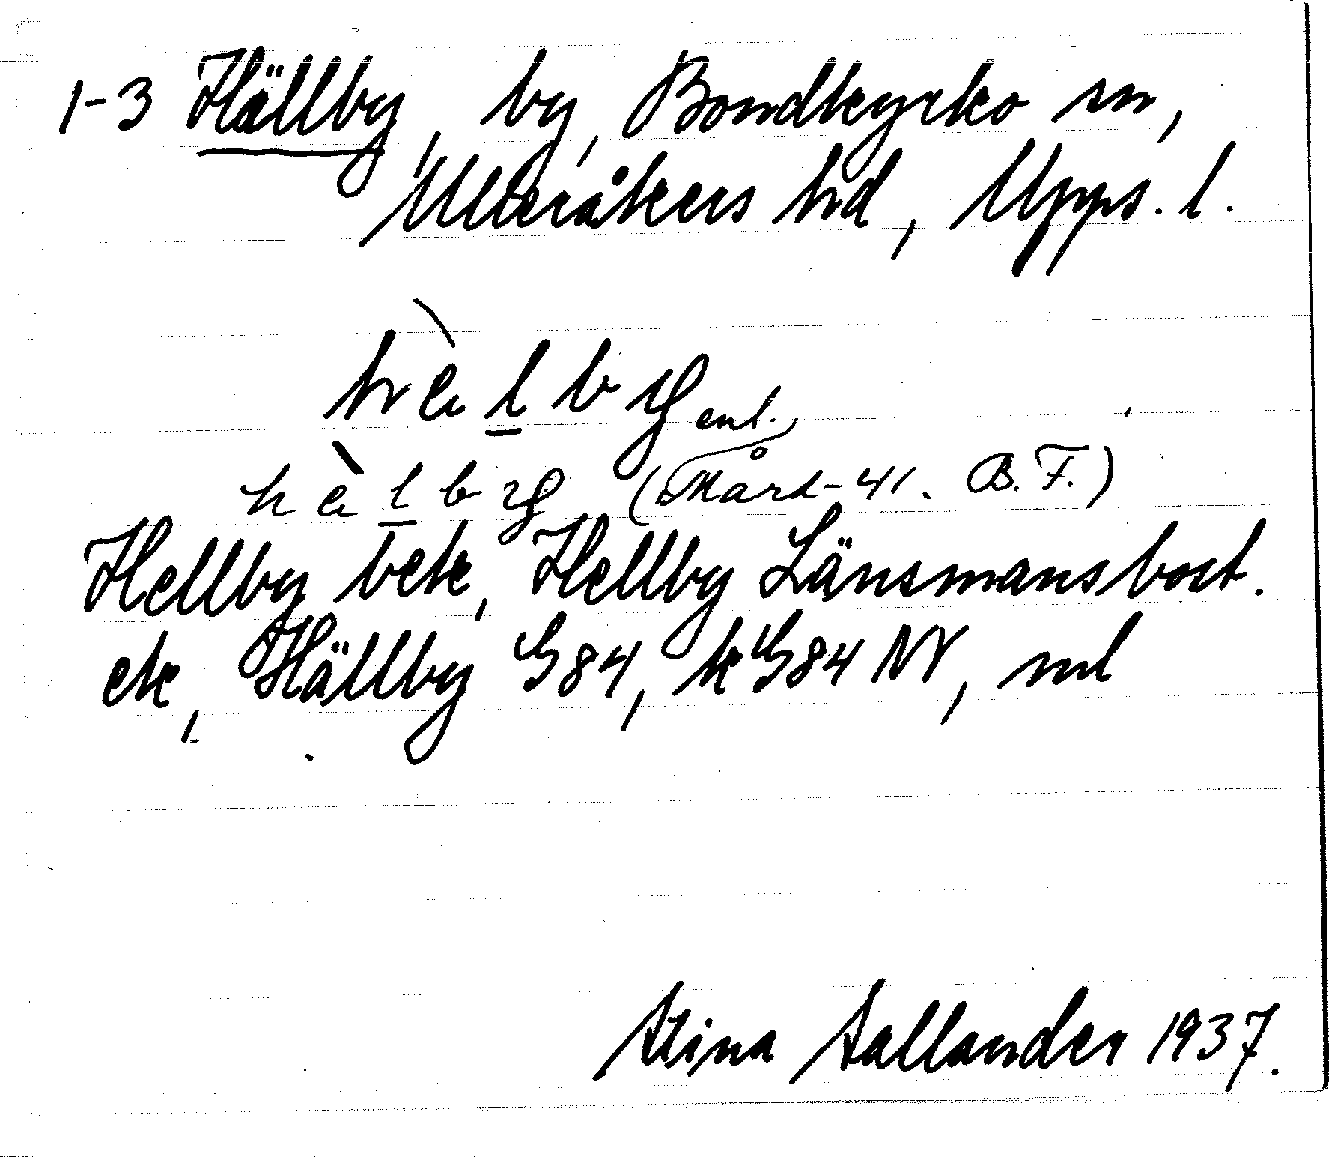 1-3 Hällby, by, Bondkyrko sn,
Ulleråkers hd, Upps. l.
hὲlby enl.
hὲlby (Mård-41. B.F.)
Hellby bek, Hellby Länsmansbost.
ek, Hällby G84, kG84 NV, ml
Stina Sallander 1937.